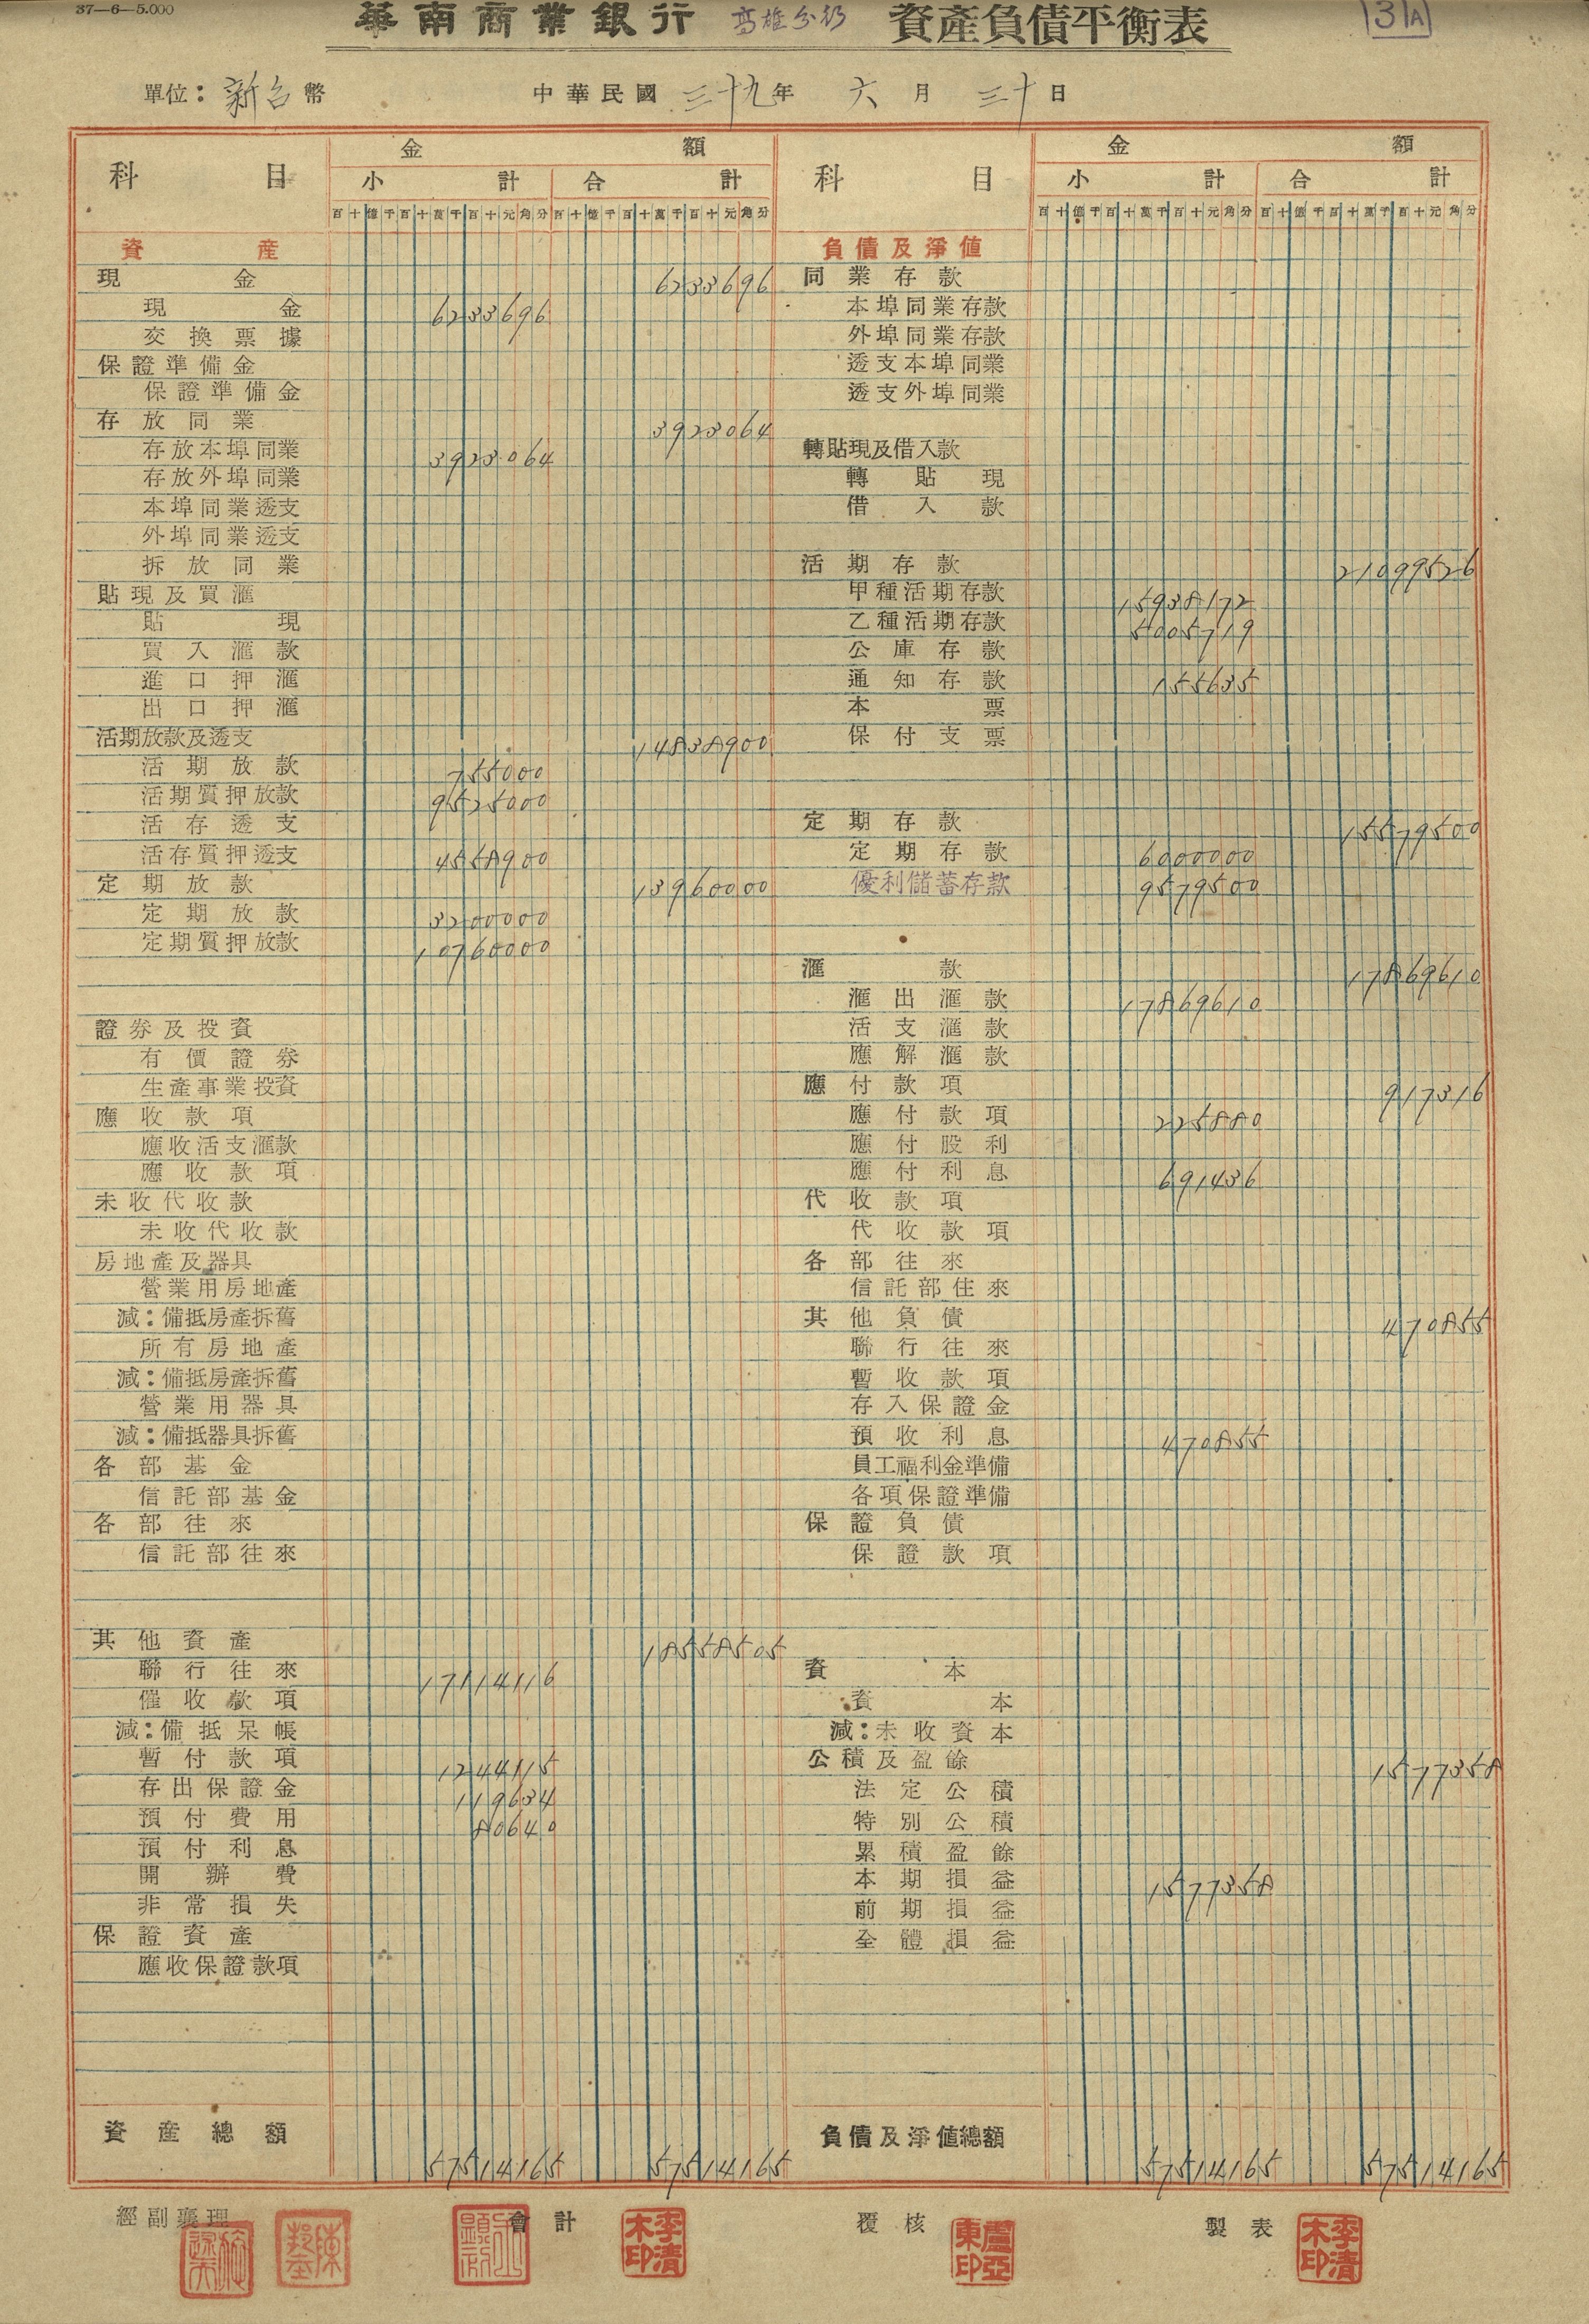 37—6—5.000
華南商業銀行 高雄分行 資產負債平衡表
3 A
單位：新台幣 中華民國三十九年六月三十日
科目 金額
小計 合計
百十億千百十萬千百十元角分 百十億千百十萬千百十元角分
資產
現金 6233696
現金 6233696
交換票據
保證準備金
保證準備金
存放同業 3923064
存放本埠同業 3923064
存放外埠同業
本埠同業透支
外埠同業透支
拆放同業
貼現及買滙
貼現
買入滙款
進口押滙
出口押滙
活期放款及透支 14838900
活期放款 755000
活期質押放款 9525000
活存透支
活存質押透支 4558900
定期放款 13960000
定期放款 3200000
定期質押放款 10760000
證券及投資
有價證券
生產事業投資
應收款項
應收活支滙款
應收款項
未收代收款
未收代收款
房地產及器具
營業用房地產
減：備抵房產拆舊
所有房地產
減：備抵房產拆舊
營業用器具
減：備抵器具拆舊
各部基金
信託部基金
各部往來
信託部往來
其他資產 18558505
聯行往來 17114116
催收款項
減：備抵呆帳
暫付款項 1244115
存出保證金 119634
預付費用 80640
預付利息
開辦費
非常損失
保證資產
應收保證款項
資產總額 57514165 57514165
科目 金額
小計 合計
百十億千百十萬千百十元角分 百十億千百十萬千百十元角分
負債及淨值
同業存款
本埠同業存款
外埠同業存款
透支本埠同業
透支外埠同業
轉貼現及借入款
轉貼現
借入款
活期存款 21099526
甲種活期存款 15938172
乙種活期存款 5005719
公庫存款
通知存款 155635
本票
保付支票
定期存款 15579500
定期存款 6000000
優利儲蓄存款 9579500
滙款 17869610
滙出滙款 17869610
活支滙款
應解滙款
應付款項 917316
應付款項 225880
應付股利
應付利息 691436
代收款項
代收款項
各部往來
信託部往來
其他負債 470855
聯行往來
暫收款項
存入保證金
預收利息 470855
員工福利金準備
各項保證準備
保證負債
保證款項
資本
資本
減：未收資本
公積及盈餘 1577358
法定公積
特別公積
累積盈餘
本期損益 1577358
前期損益
全體損益
負債及淨值總額 57514165 57514165
經副襄理 會計 李清木印 覆核 盧亞東印 製表 李清木印